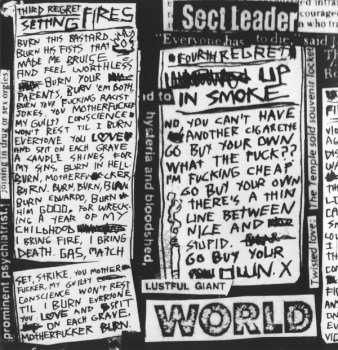 THIRD REGRET
SETTING FIRES
BURN THIS BASTARD
BURN HIS FISTS THAT
MADE ME BRUISE
AND FEEL WORTHLESS
BURN YOUR
PARENTS, BURN 'EM BOTH,
BURN YOUR FUCKING RACIST
JOKES, YOU MOTHERFUCKER
MY GUILTY CONSCIENCE
WON'T REST TIL I BURN
EVERYONE YOU LOVE
AND SPIT ON EACH GRAVE
A CANDLE SHINES FOR
MY SINS, BURN IN HELL
BURN, MOTHERF CKER,
BURN. BURN, BURN, BURN
BURN EDWARDO, BURN
HIM GOOD, FOR WRECK-
ING A YEAR OF MY
CHILDHOOD
I BRING FIRE, I BRING
DEATH. GAS, MATCH
SET, STRIKE, YOU MOTHER
FUCKER, MY GUILTY
CONSCIENCE WON'T REST
TIL I BURN EVERYONE
YOU LOVE AND SPIT
ON EACH GRAVE,
MOTHERFUCKER BURN.
joining in drug or sex orgies
prominent psychiatrist.
Sect Leader
"Everyone has to die," said J
FOURTH REGRET
UP
IN SMOKE
NO, YOU CAN'T HAVE
ANOTHER CIGARETTE
GO BUY YOUR OWN,
WHAT THE FUCK??
I'M FUCKING CHEAP
GO BUY YOUR OWN
THERE'S A THIN
LINE BETWEEN
NICE AND
STUPID.
GO BUY YOUR
OWN. X
d to
hysteria and bloodshed.
The temple sold souvenir locke
Twisted love:
LUSTFUL GIANT
WORLD